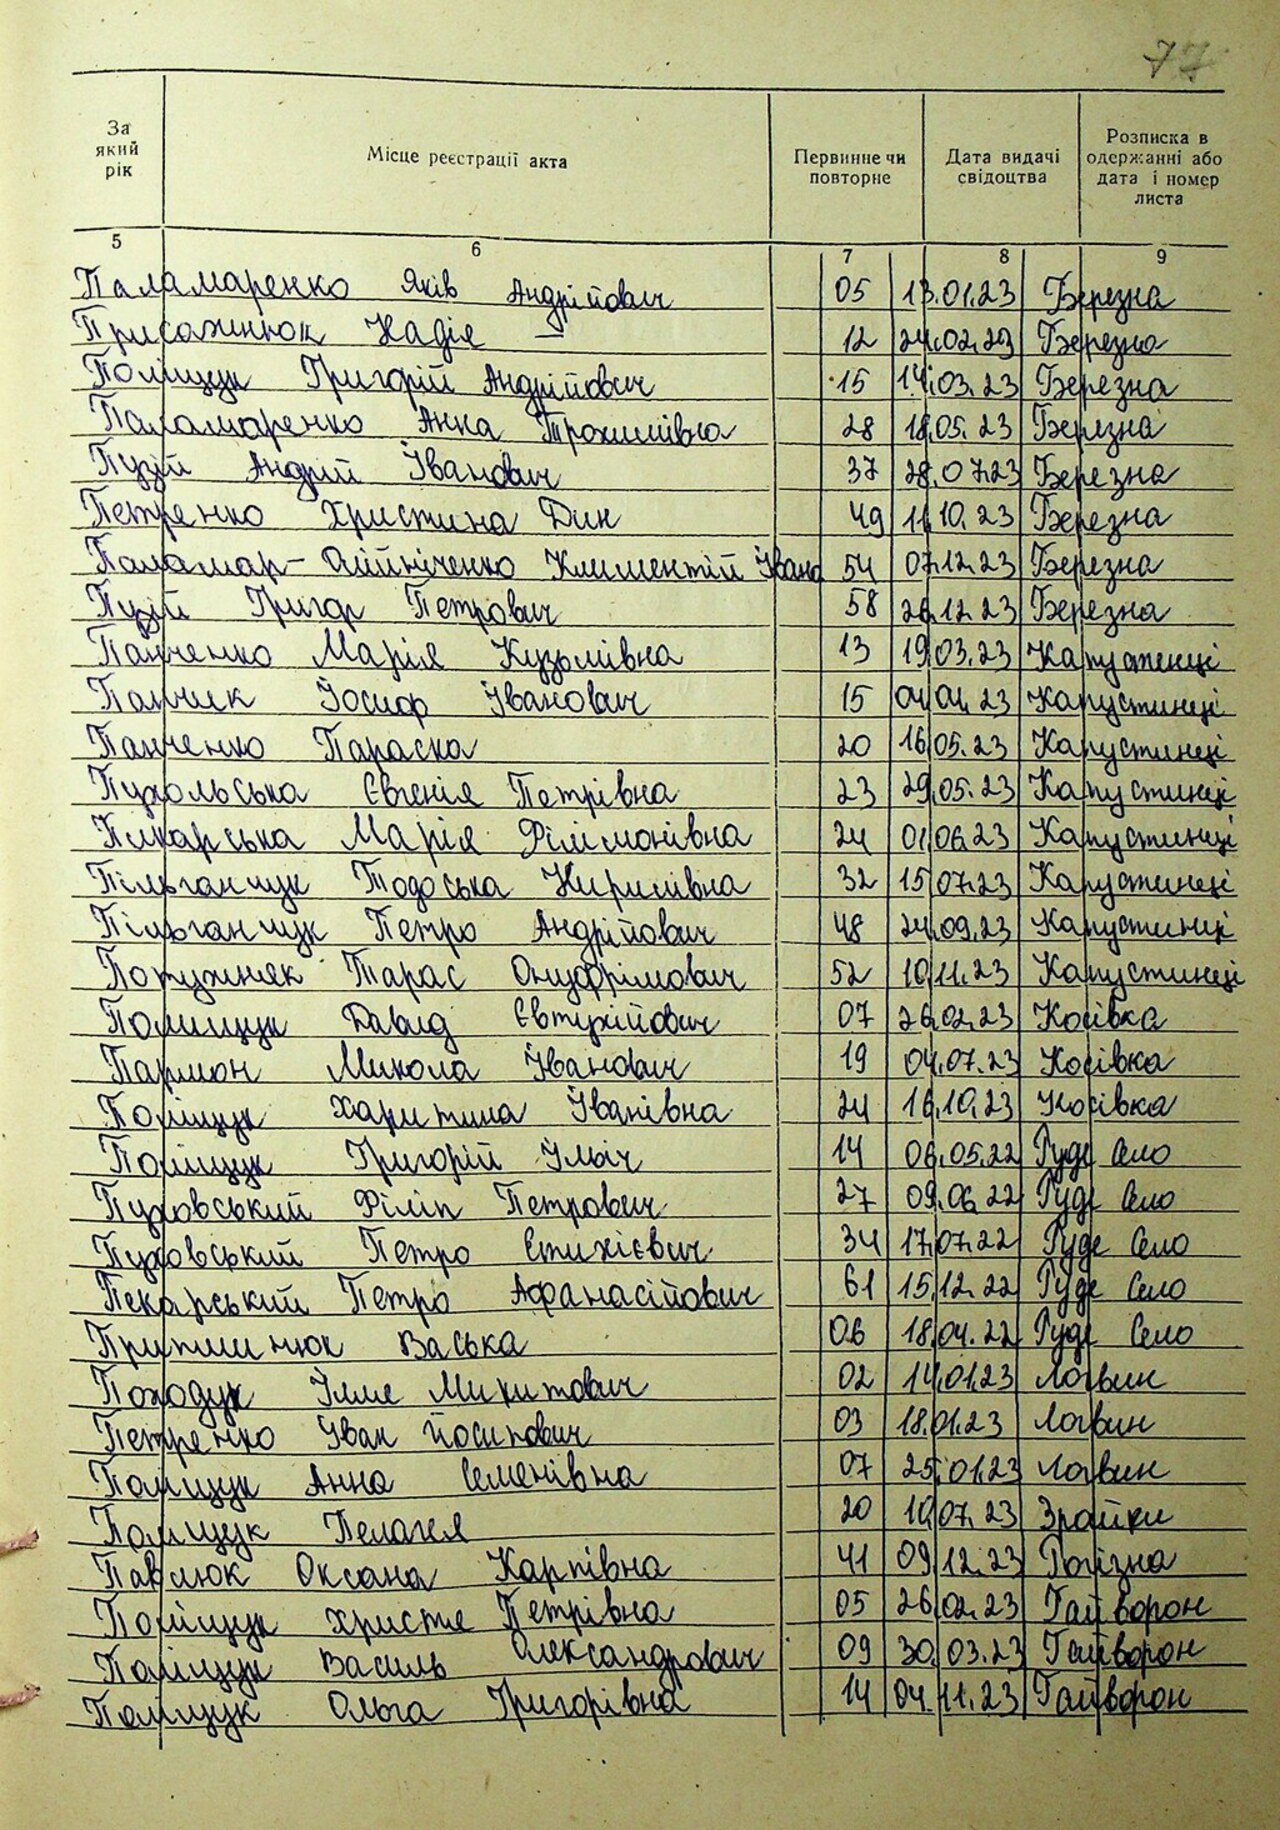 77
За який рік Місце реєстрації акта Первинне чи повторне Дата видачі свідоцтва Розписка в одержанні або дата і номер листа
5 6 7 8 9
Паламаренко Яків Андрійович 05 13.01.23 Березна
Присажнюк Надія — 12 24.02.23 Березна
Поліщук Григорій Андрійович 15 14.03.23 Березна
Паламаренко Анна Трохимівна 28 18.05.23 Березна
Пузій Андрій Іванович 37 28.07.23 Березна
Петренко Христина Дин 49 11.10.23 Березна
Паламар- Олійніченко Климентій Івано 54 07.12.23 Березна
Пузій Григор Петрович 58 26.12.23 Березна
Панченко Марія Кузьмівна 13 19.03.23 Капустинці
Панчек Йосиф Іванович 15 04.04.23 Капустинці
Панченко Параска 20 16.05.23 Капустинці
Пухольська Євгенія Петрівна 23 29.05.23 Капустинці
Пікарська Марія Філімонівна 24 01.06.23 Капустинці
Пільганчук Тодоська Кирилівна 32 15.07.23 Капустинці
Пільганчук Петро Андрійович 48 24.09.23 Капустинці
Потужняк Тарас Онуфрімович 52 10.11.23 Капустинці
Полищук Давид Євтухійович 07 26.02.23 Косівка
Пармон Микола Іванович 19 04.07.23 Косівка
Поліщук Харитина Іванівна 24 16.10.23 Косівка
Поліщук Григорій Ілліч 14 06.05.22 Руде Село
Пуховський Філіп Петрович 27 09.06.22 Руде Село
Пуховський Петро Єтихієвич 34 17.07.22 Руде Село
Пекарський Петро Афанасійович 61 15.12.22 Руде Село
Васька 06 18.04.22 Руде Село
Походук Ілля Микитович 02 14.01.23 Логвин
Петренко Іван Йосипович 03 18.01.23 Логвин
Поліщук Анна Семенівна 07 25.01.23 Логвин
Поліщук Пелагея 20 10.07.23 Зрайки
Павлюк Оксана Карпівна 41 09.12.23 Рогізна
Поліщук Христя Петрівна 05 26.02.23 Гайворон
Поліщук Василь Олександрович 09 30.03.23 Гайворон
Поліщук Ольга Григорівна 14 04.11.23 Гайворон